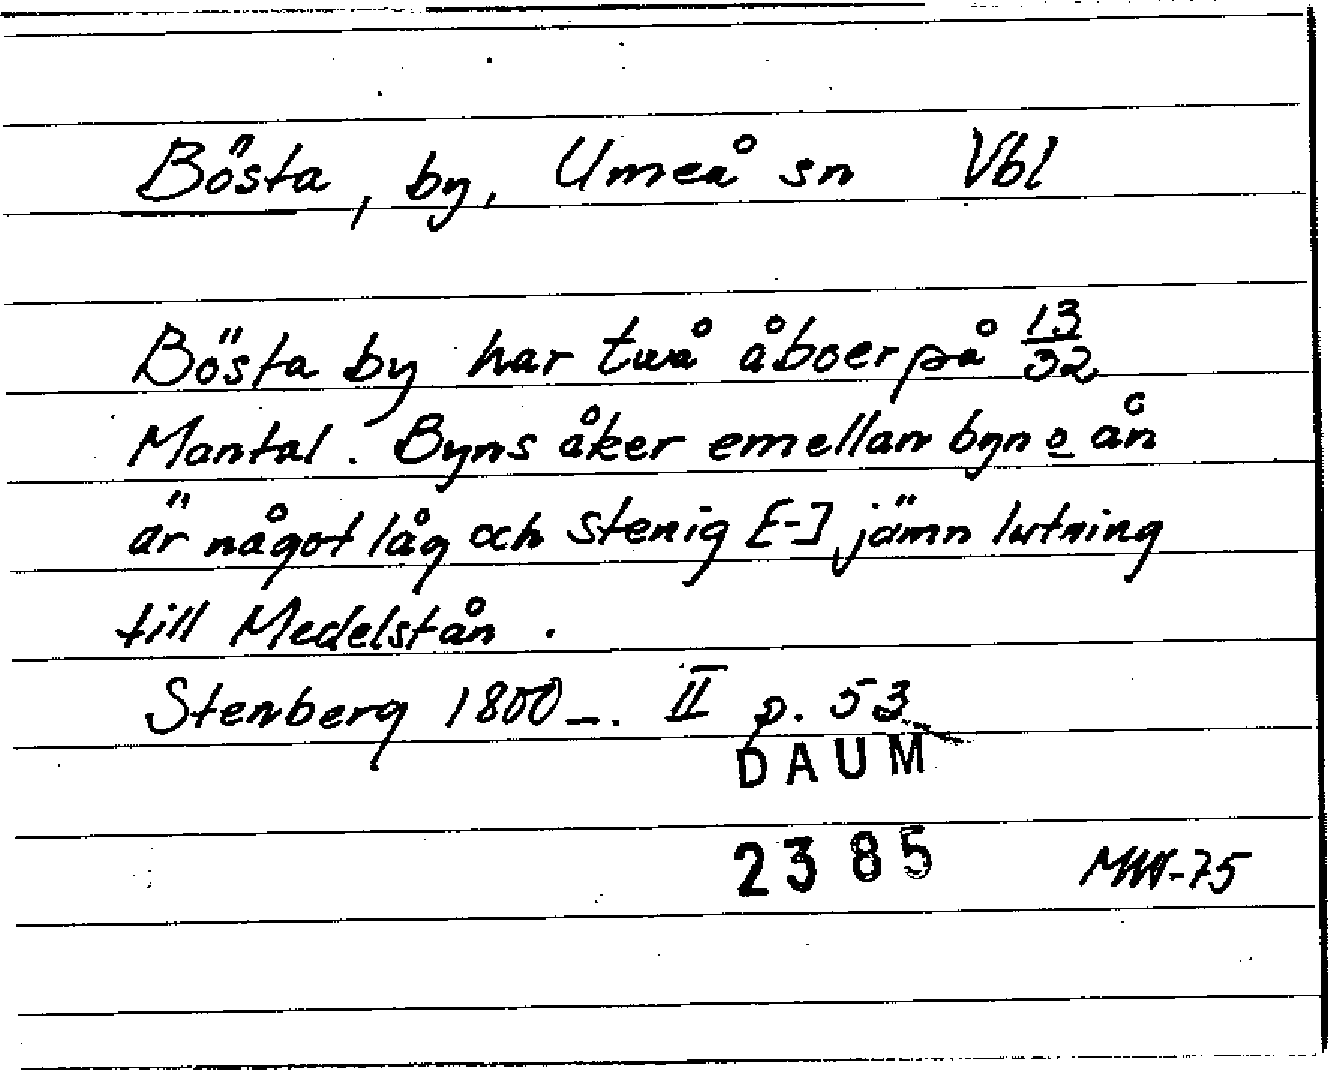 Bösta, by, Umeå sn Vbl
Bösta by har två åboer på 13/32
Mantal. Byns åker emellan byn o ån
är något låg och stenig [-] jämn lutning
till Medelstån.
Stenberg 1800-. II p. 53
DAUM
2385
-75